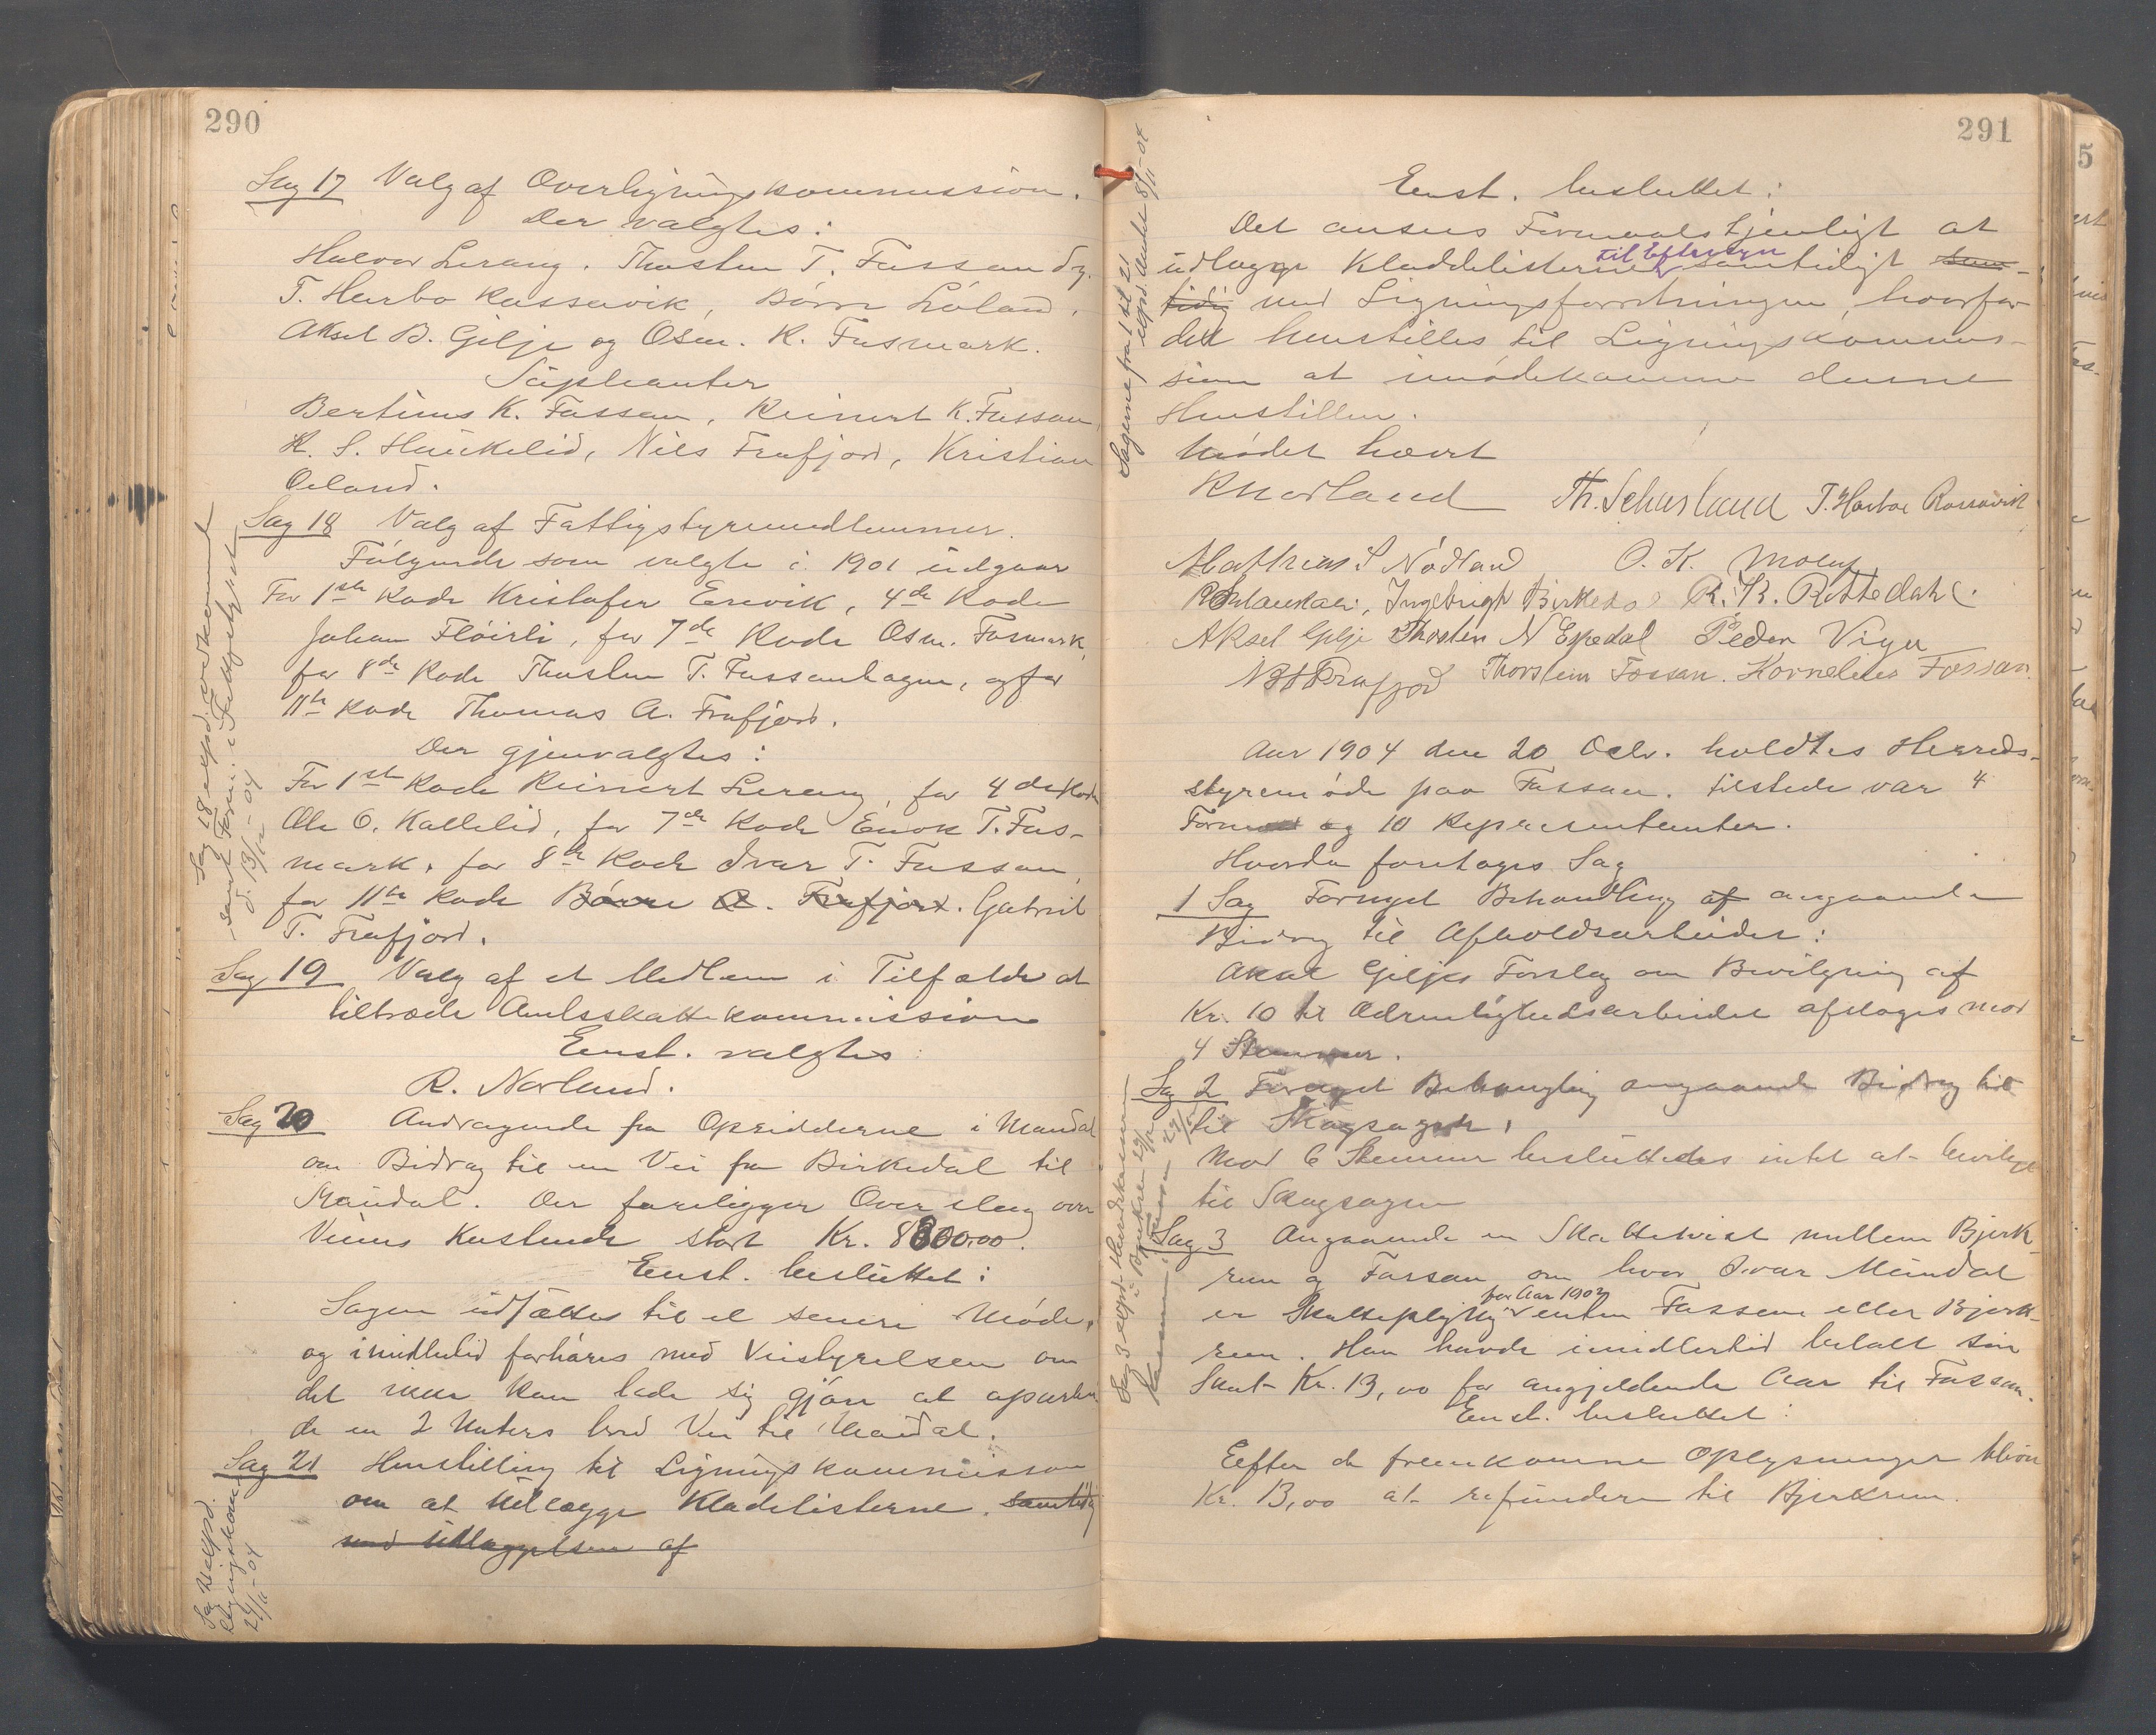 290
Sag 17 Valg af Overligningskommission.
Der valgtes:
Halvor Lerang, Thosten T. Fossan dy.
T. Harbo Rassavik, Børre Lóland,
Aksel B. Gilje og Osm. K. Fosmark.
Supleanter
Bertinus K. Fossan, Reinert K. Fossan
K. S. Haukelid, Nils Frafjord, Kristian
Oeland.
Sag 18 Valg af Fattigstyremedlemmer.
Følgende som valgte i 1901 udgaar
For 1ste Rode Kristofer Erevik, 4de Rode
Johan Flóirli, for 7de Rode Osm. Fosmark,
for 8de Rode Thosten T. Fossanhagen, og for
11te Rode Thomas A. Frafjord.
Der gjenvalgtes:
For 1ste Rode Reinert Lerang, for 4de Rode
Ole O. Kallelid, for 7de Rode Enok T. Fos-
mark, for 8de Rode Ivar T. Fossan,
for 11te Rode Børre O. Frafjord. Gabriel
T. Frafjord.
Sag 19 Valg af et Medlem i Tilfælde at
tiltræde Amtsskattekommission
Enst. valgtes:
R. Norland.
Sag 20 Andragende fra Opsidderne i Maudal
om Bidrag til en Vei fra Birkedal til
Maudal. Der foreligger Overslag over
Veiens Kostende stort Kr. 8800,00.
Enst. besluttet:
Sagen udsættes til et senere Møde,
og imidlertid forhøres med Veistyrelsen om
det ikke kan lade sig gjøre at oparbei-
de en 2 Meters bred Vei til Maudal.
Sag 21 Henstilling til Ligningskommission
om at udlægge Kladelisterne. samtidig
med Udlæggelsen af
Sag 18 expd. vedkommende
samt Form. i Fattigstyret
d. 13/12-04
Sag 21 expd.
Ligningskom.
21/11-04
291
Enst. besluttet:
Det ansees Formaalstjenligt at
til Eftersyn
udlægge Kladdelisterne samtidigt sam-
tidig med Ligningsforretningen, hvorfor
det henstilles til Ligningskommis-
sion at imødekomme denne
Henstillen.
Mødet hævet
R Norland Th. Schusland T. Harboe Rossavik
Mathias S Nódland O. K. Molaug
Ingebrigt Birkedal R. K. Rettedahl.
Aksel Gilje Thosten N Espedal Peder Vigu
Frafjord Thorstein Fossan. Kornelius Fossan.
Aar 1904 den 20 Octv. holdtes Herreds-
styremøde paa Fossan. Tilstede var 4
Formæd og 10 Representanter.
Hvorda foretoges Sag
1 Sag Fornyet Behandling af angaaende
Bidrag til Afholdsarbeidet:
Aksel Giljes Forslag om Bevilgning af
Kr. 10 til Ædruelighedsarbeidet afsloges mod
4 Stemmer.
Sag 2 Fornyet Behandling angaaende Bidrag til
til Skogsagen,
Mod 6 Stemmer besluttedes intet at bevilge
til Skogsagen
Sag 3 Angaaende en Skattetvist mellem Bjerk-
rem og Fossan om hvor Ivar Maudal
for Aar 1902
er Skattepligtig enten Fossan eller Bjerk-
rem. Han havde imidlertid betalt sin
Skat Kr. 13,00 for angjeldende Aar til Fossan.
Enst. besluttet:
Eefter de fremkomne Oplysninger bliver
Kr. 13,00 at refundere til Bjerkrem.
Sagerne fra 1 til 21
expd. Amtet 8/11-04
Sag 3 expd. Herredskasserer